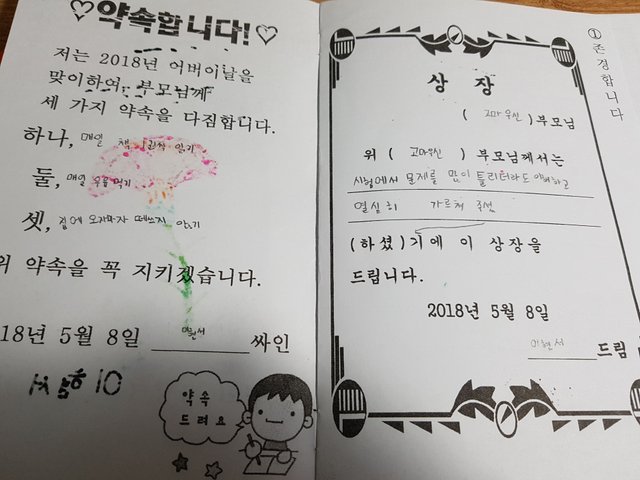 ♡약속합니다!♡
저는 2018년 어버이날을
맞이하여, 부모님께
세 가지 약속을 다짐합니다.
하나, 매일 책 1권씩 읽기
둘, 매일 우유 먹기
셋, 집에 오자마자 떼쓰지 않기
위 약속을 꼭 지키겠습니다.
18년 5월 8일 이현서 싸인
약속
드려요
상 장
( 고마우신 )부모님
위 ( 고마우신 ) 부모님께서는
시험에서 문제를 많이 틀리더라도 이해하고
열심히 가르쳐 주셨
(하셨)기에 이 상장을
드립니다.
2018년 5월 8일
이현서 드림
① 존경합니다